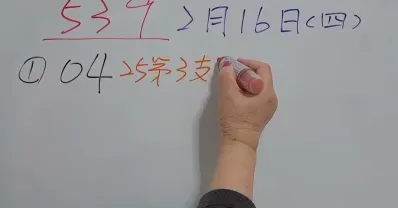 539 2月16日(四)
① 04 25第3支